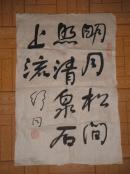 明月松间
照清泉石
上流
舒同